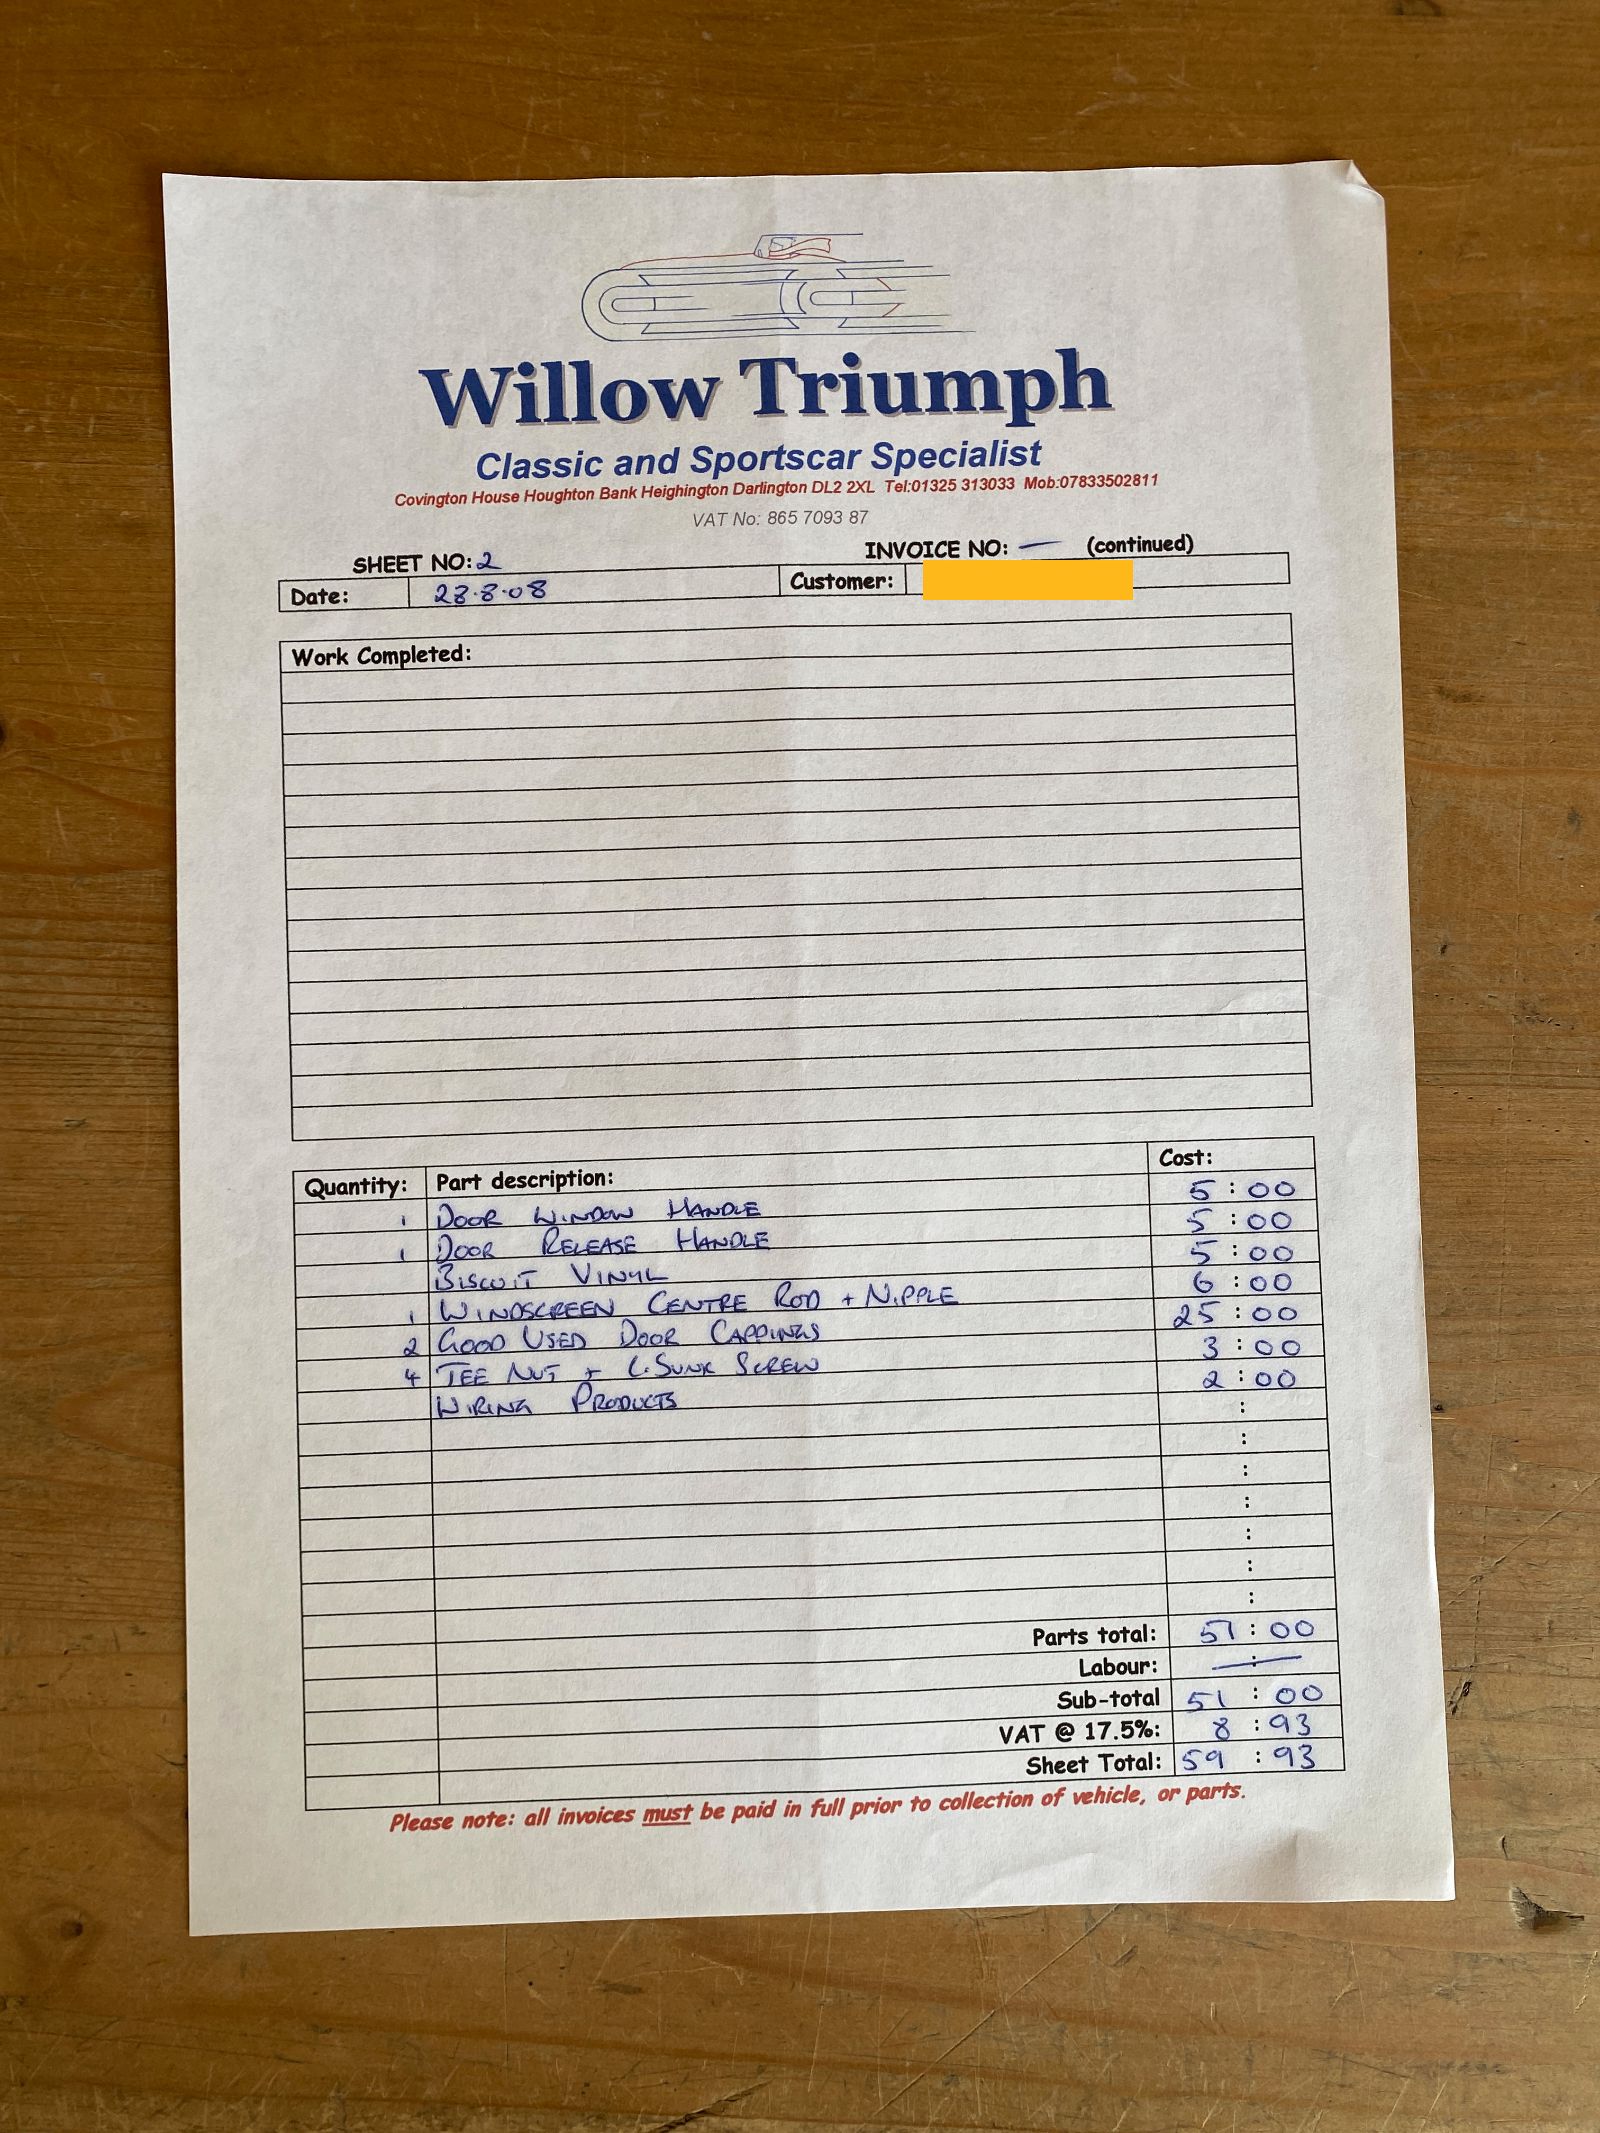 Willow Triumph
Classic and Sportscar Specialist
Covington House Houghton Bank Heighington Darlington DL2 2XL Tel:01325 313033 Mob:07833502811
VAT No: 865 7093 87
SHEET NO: 2 INVOICE NO: — (continued)
Date: 28.8.08 Customer:
Work Completed:
Quantity: Part description: Cost:
1 DOOR WINDOW HANDLE 5:00
1 DOOR RELEASE HANDLE 5:00
BISCUIT VINYL 5:00
1 WINDSCREEN CENTRE ROD + NIPPLE 6:00
2 GOOD USED DOOR CAPPINGS 25:00
4 TEE NUT + C.SUNK SCREW 3:00
WIRING PRODUCTS 2:00
:
:
:
:
:
:
:
Parts total: 51:00
Labour: — : —
Sub-total 51:00
VAT @ 17.5%: 8:93
Sheet Total: 59:93
Please note: all invoices must be paid in full prior to collection of vehicle, or parts.